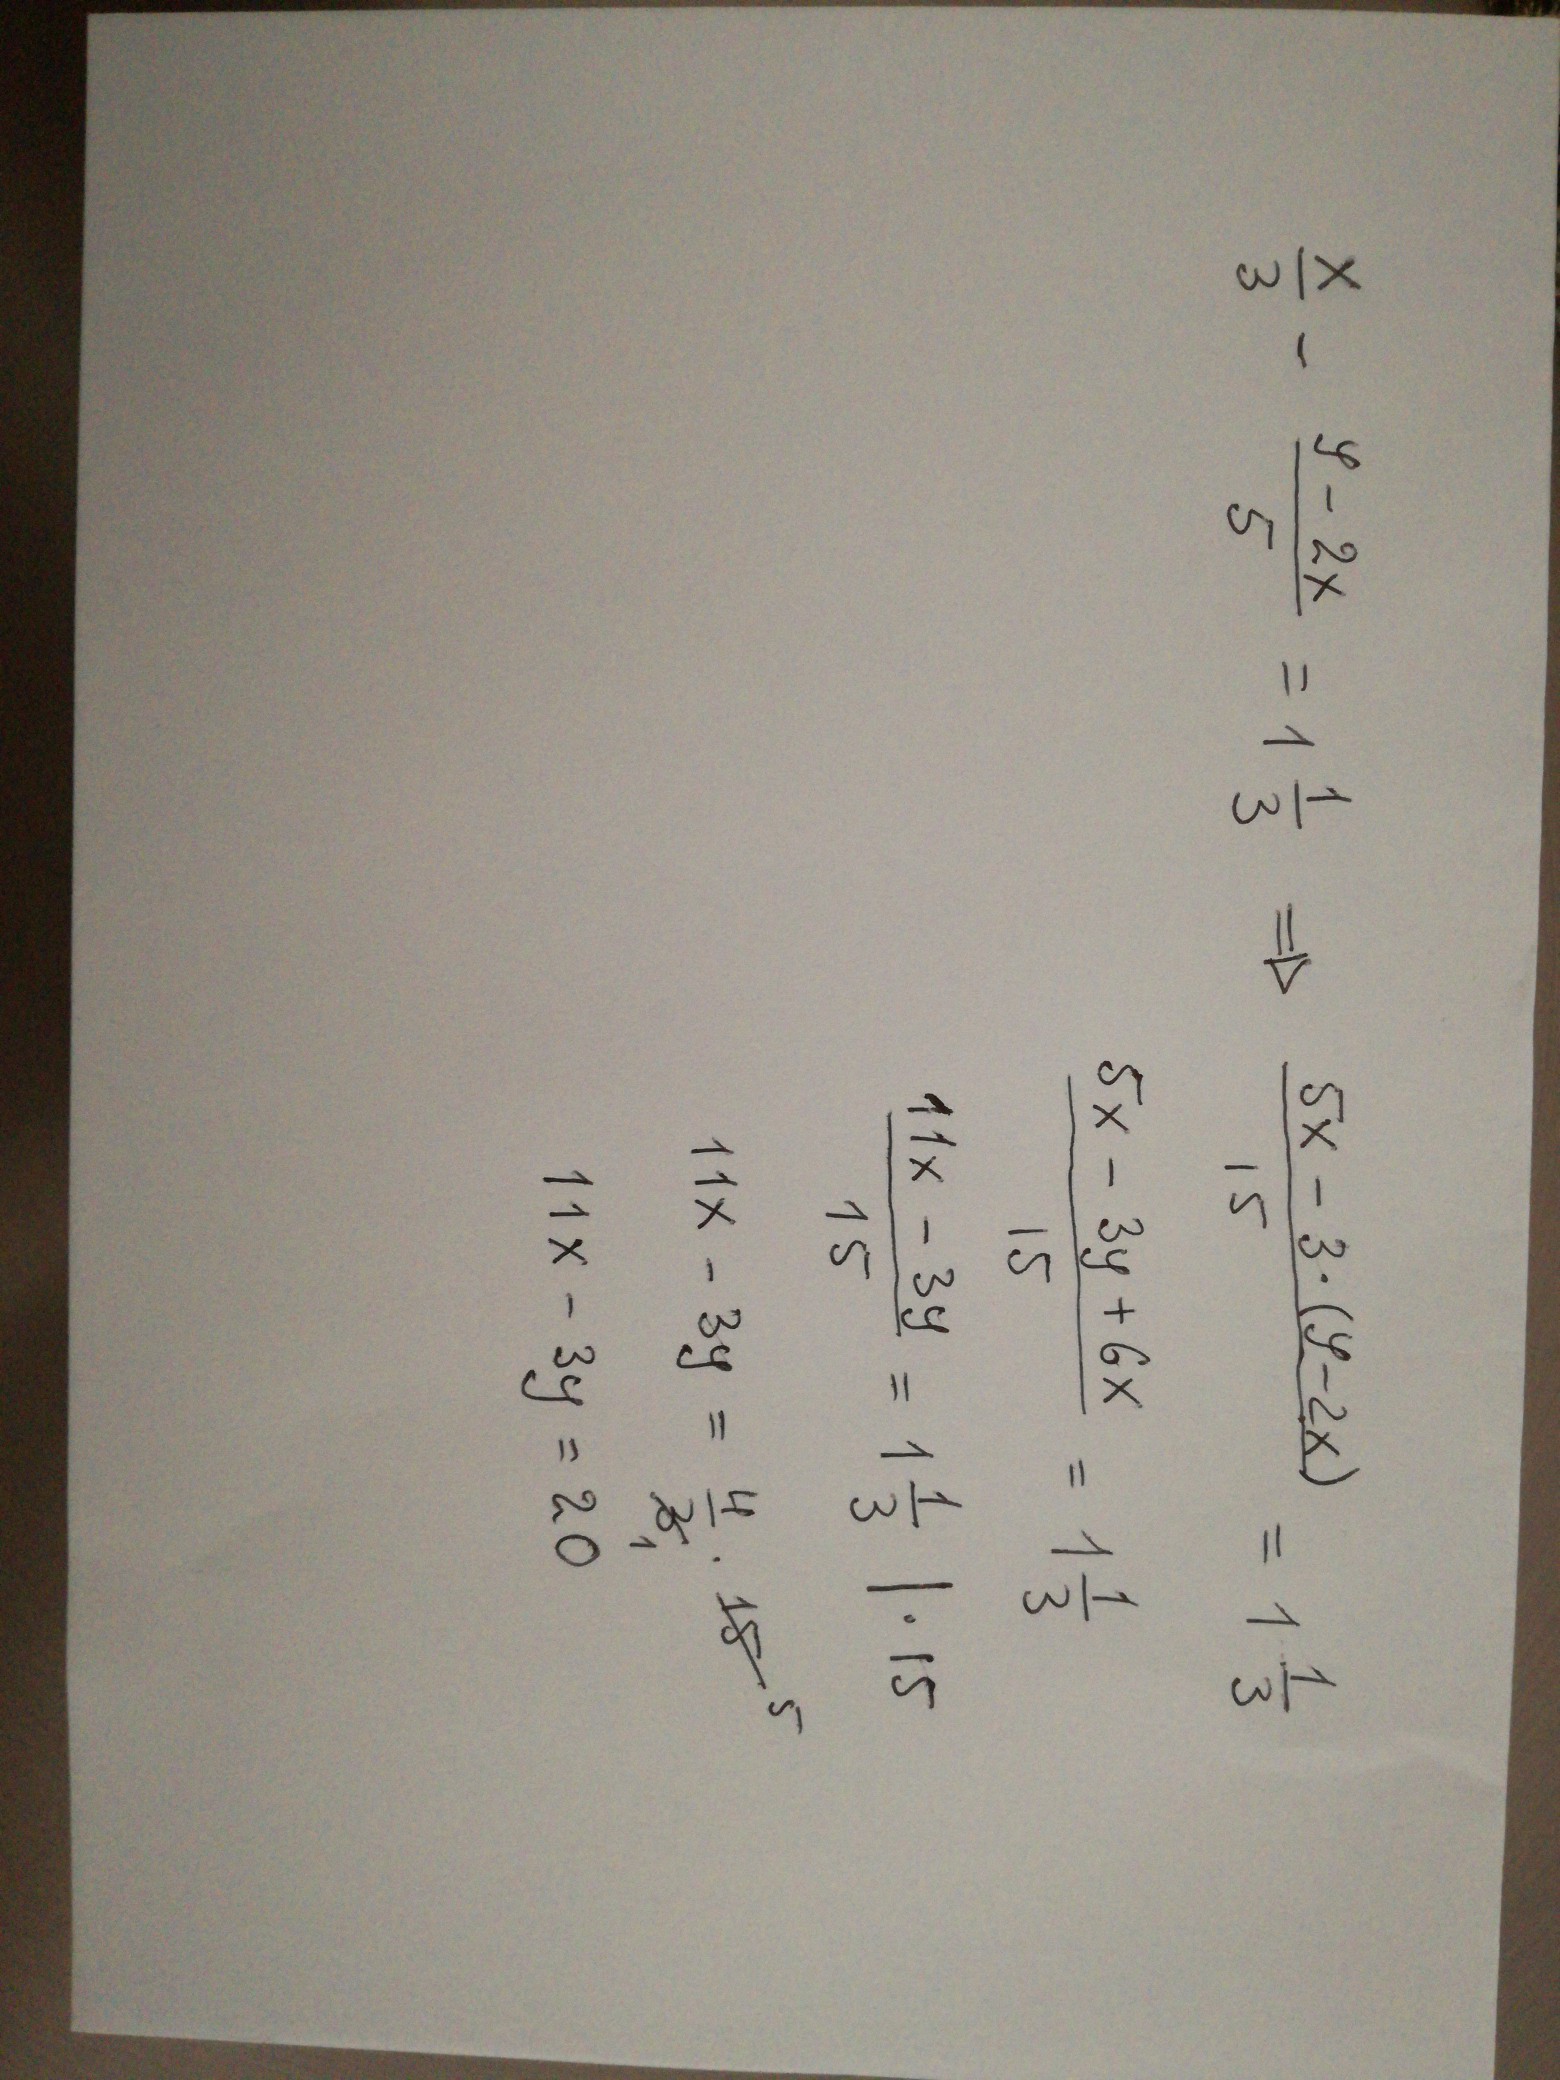 x/3 - (y - 2x)/5 = 1 1/3 ⇒ (5x - 3·(y - 2x))/15 = 1 1/3
(5x - 3y + 6x)/15 = 1 1/3
(11x - 3y)/15 = 1 1/3 | · 15
11x - 3y = 4/3 1 · 15 5
11x - 3y = 20